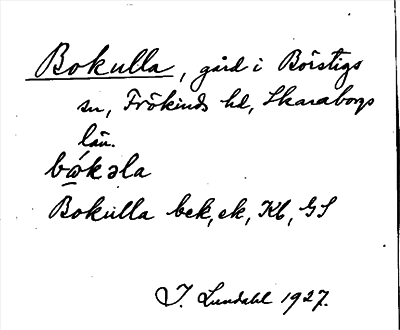 Bokulla, gård i Börstigs
sn, Frökinds hd, Skaraborgs
län.
bώ̲kəla
Bokulla bek, ek, Kb, GS
I. Lundahl 1927.